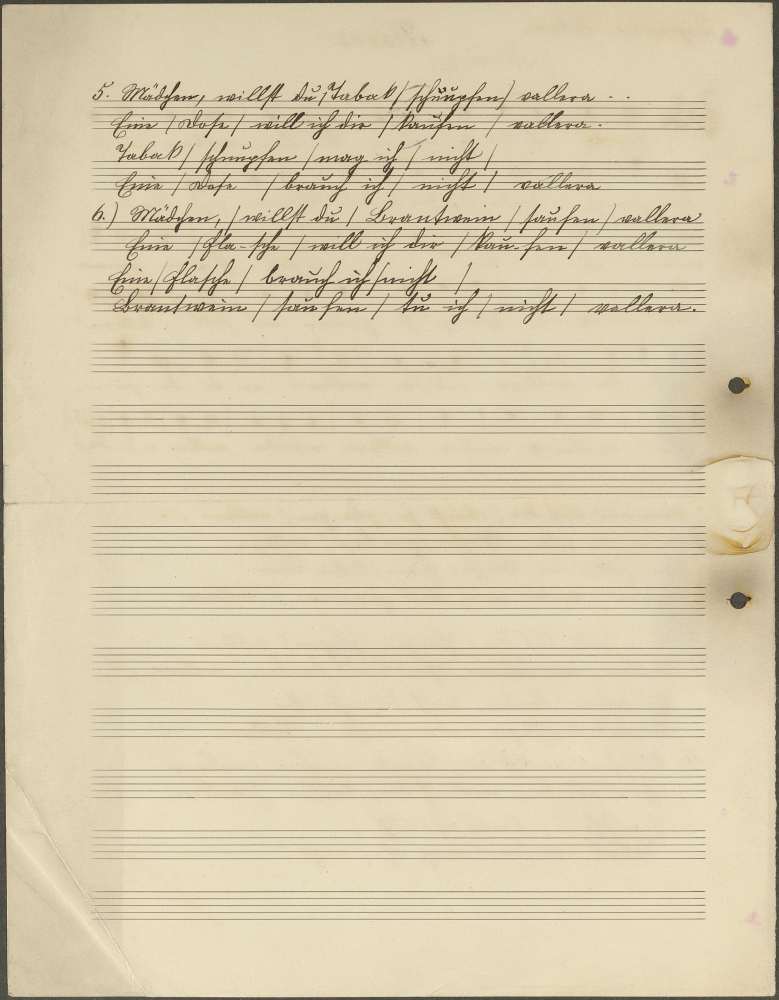 5. Mädchen, willst du / Tabak / schnupfen / vallera . .
Eine / Dose / will ich dir / kaufen / vallera.
Tabak / schnupfen / mag ich / nicht /
Eine / Dose / brauch ich / nicht / vallera
6.) Mädchen, / willst du / Brantwein / saufen / vallera
Eine / Fla-sche / will ich dir / kau-fen / vallera
Eine / Flasche / brauch ich / nicht /
Brantwein / saufen / tu ich / nicht / vallera.